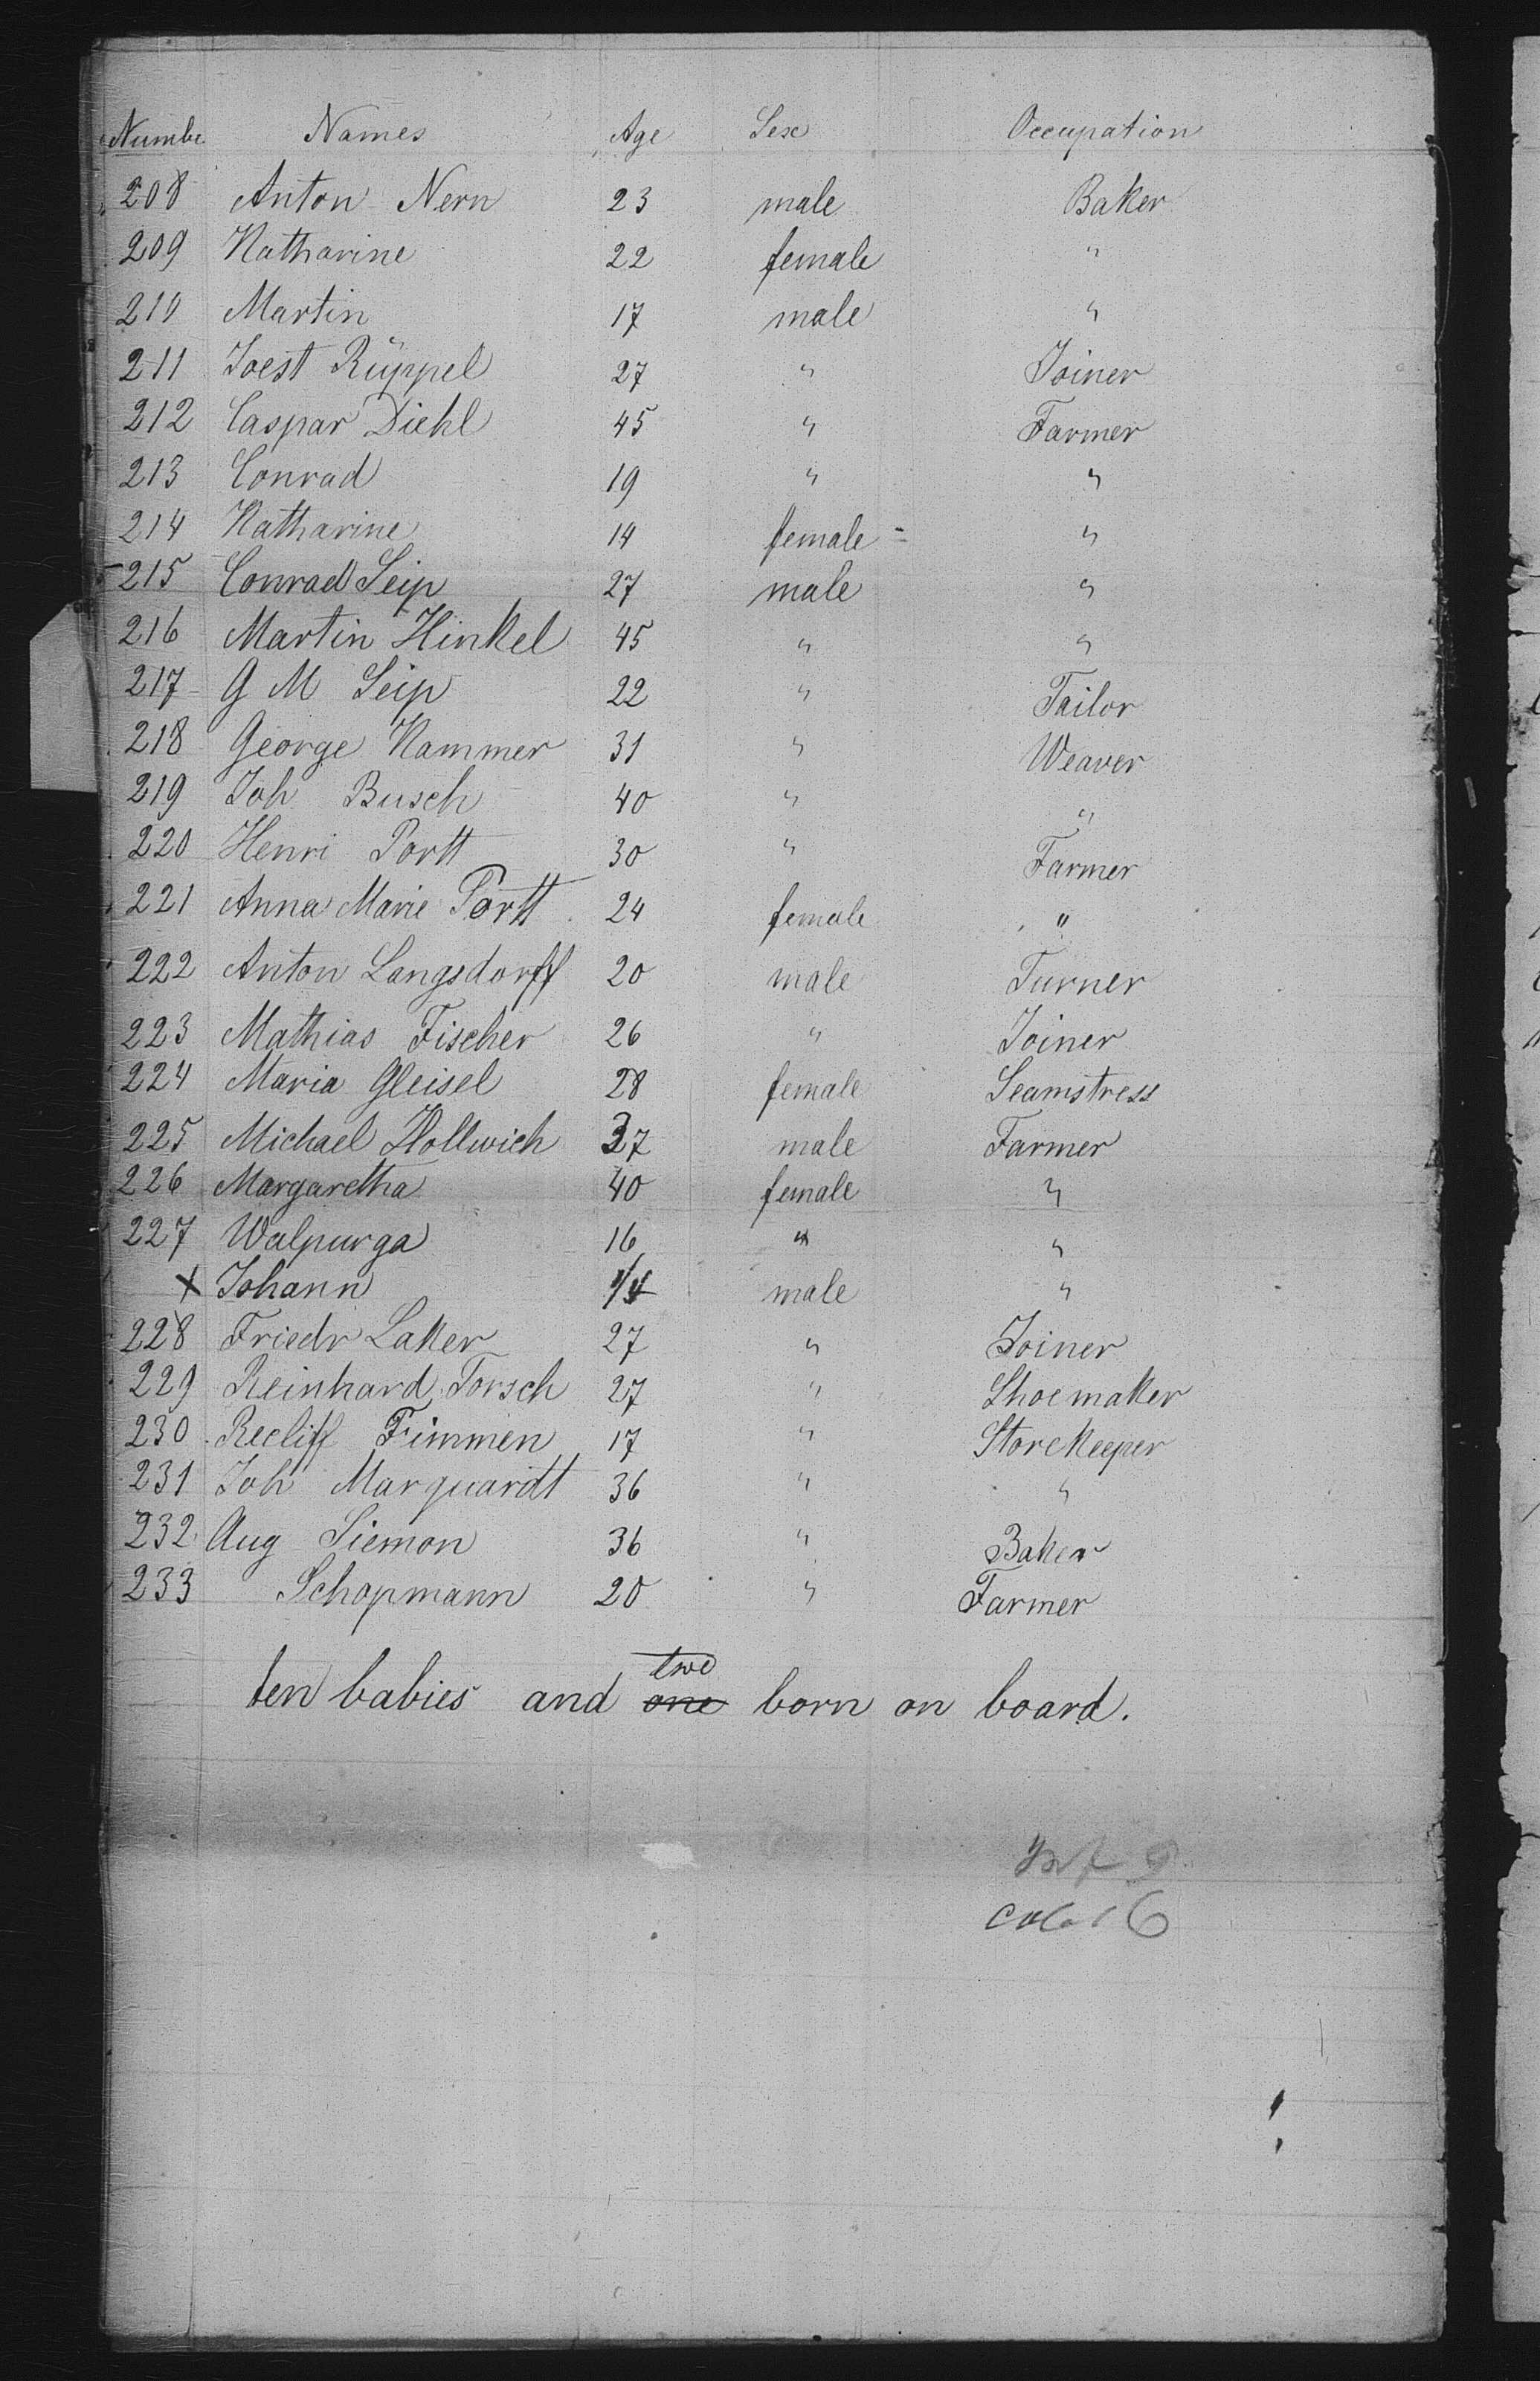 Numbe Names Age Sex Occupation
208 Anton Nern 23 male Baker
209 Katharine 22 female "
210 Martin 17 male "
211 Joest Rüppel 27 " Joiner
212 Caspar Diehl 45 " Farmer
213 Conrad 19 " "
214 Katharine 14 female "
215 Conrad Seip 27 male "
216 Martin Hinkel 45 " "
217 G M Seip 22 " Tailor
218 George Kammer 31 " Weaver
219 Joh Busch 40 " "
220 Henri Portt 30 " Farmer
221 Anna Marie Portt 24 female "
222 Anton Langsdorff 20 male Turner
223 Mathias Fischer 26 " Joiner
224 Maria Gleisel 28 female Seamstress
225 Michael Hollwich 37 male Farmer
226 Margaretha 40 female "
227 Walpurga 16 " "
x Johann 1/4 male "
228 Friedr Laker 27 " Joiner
229 Reinhard Torsch 27 " Shoemaker
230 Recliff Fimmen 17 " Storekeeper
231 Joh Marquardt 36 " "
232 Aug Siemon 36 " Baker
233 Schopmann 20 " Farmer
two
ten babies and one born on board.